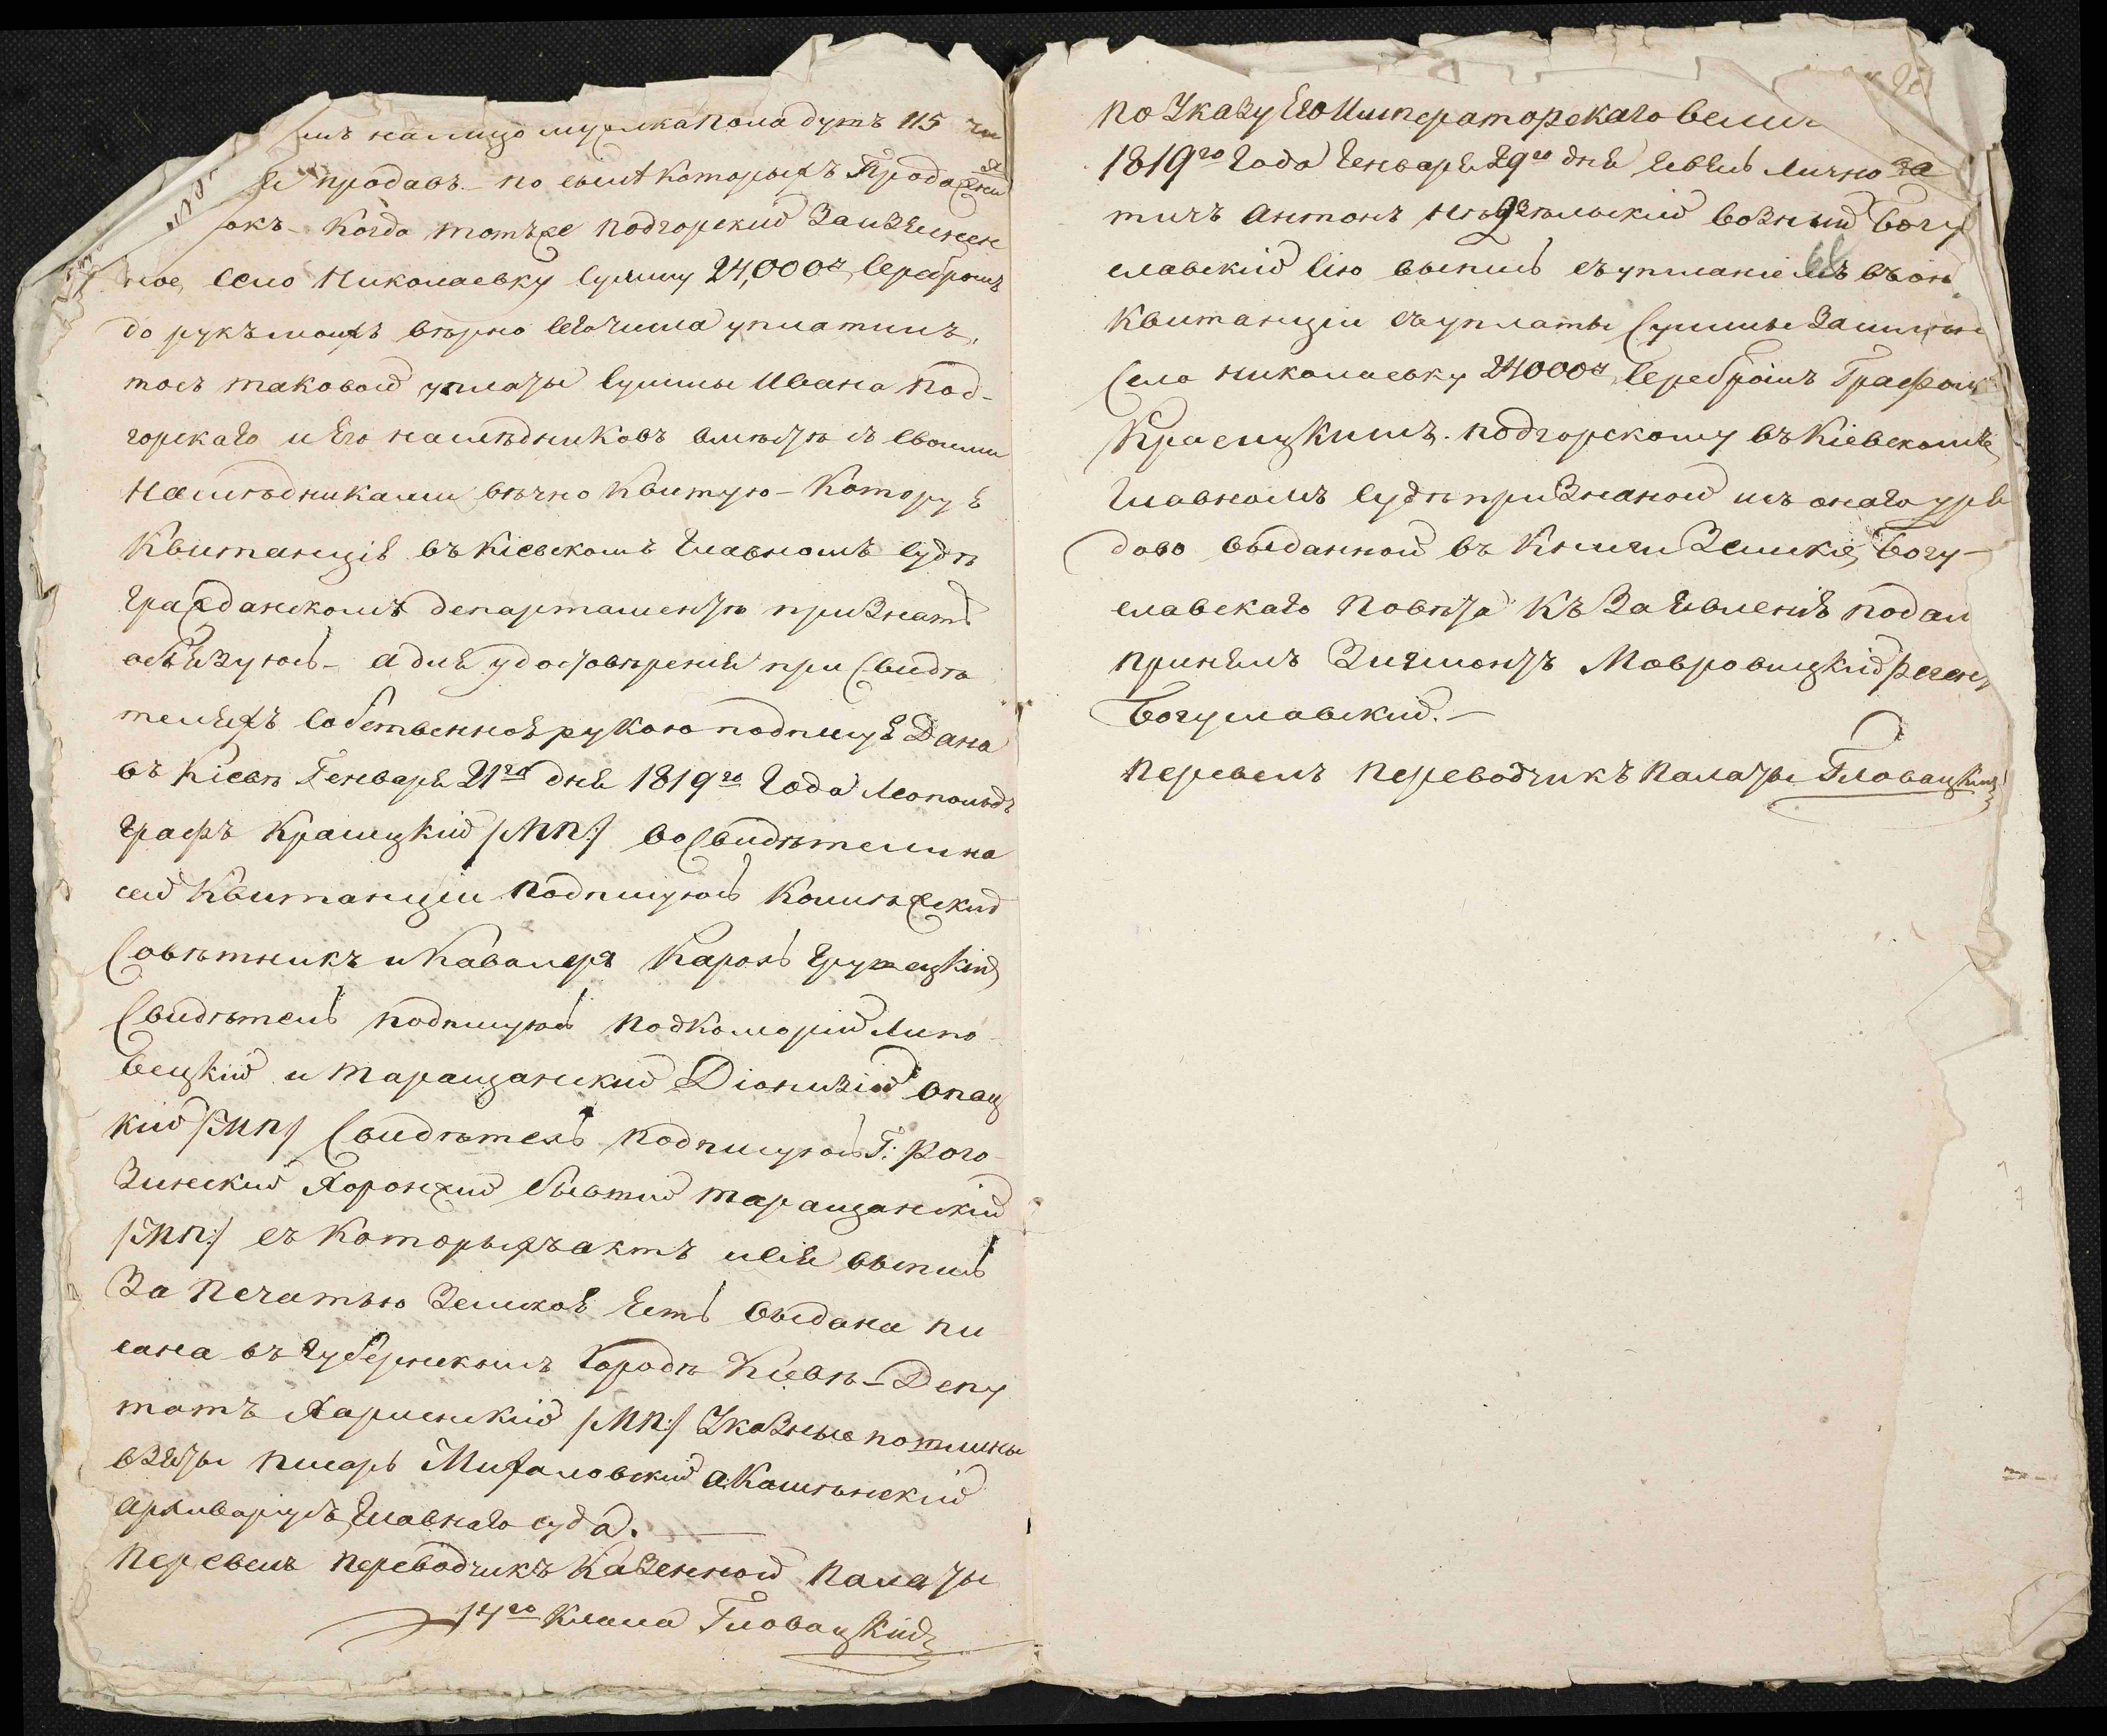 на лицо мужека пола душъ 115
продавъ – по силѣ которыхъ продаж
когда тотъже Подгорский за изъясн
ное село Николаевку сумму 24,000 серебромъ
до рукъ моихъ вѣрно сего числа уплатилъ,
таковой уплаты суммы Ивана Под-
горскаго и Его наслѣдниковъ вмѣстѣ съ своими
наслѣдниками вѣчно квитую – которую
квитанцію въ Кіевскомъ Главномъ судѣ
Гражданскомъ департаментѣ признать
обязуюсь – а для удостовѣренія при свидѣ
теляхъ собственною рукою подпишу Дано
въ Кіевѣ Генваря 21го дня 1819го года Леопольдъ
Графъ Красицкій /:МП:/ во свидѣтели на
сей квитанции подпишусь Коллѣжский
совѣтникъ и Кавалеръ Кароль
Свидѣтель подпишусь подкоморий Липо
вецкий и таращанский Діонизій Опац
кий /:МП:/ Свидѣтель подпишусь Г: Рого
зинский Хоронжий бывший таращанский
/:МП:/ съ которыхъ актъ и сія выпись
за печатью земскою есть выдана пи
сана въ губернскомъ городѣ Кіевѣ – Депу
татъ Харлинский /:МП:/ Указные пошлины
взяты писарь Михаловский а: Камѣнский
архиваріусъ главнаго суда. —
Перевелъ переводчикъ Казенной Палаты
14го класса Гловацкий
по Указу Его Императорскаго вели
1819го года генваря 29го дня явясь лично за
тичъ Антонъ возный Богу
славский сію выпись съ уписаніемъ въ он
квитанции съ уплаты суммы за имѣн
село Николаевку 24000 серебромъ Графомъ
Красицкимъ Подгорскому въ Кіевскомъ
Главномъ судѣ признаной изъ онаго уря
дово выданной въ книги земские Богу-
славскаго повѣта къ заявленію подал
принялъ Зигмонтъ Мавровицкий регент
Богуславский. —
Перевелъ переводчикъ Палаты Гловацкий